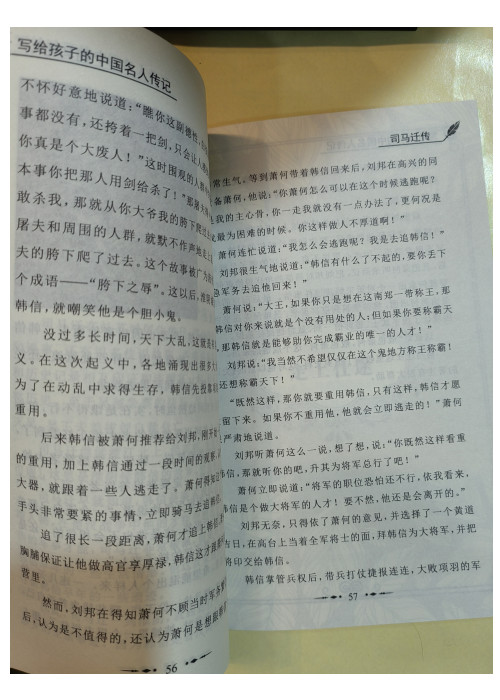 写给孩子的中国名人传记
不怀好意地说道：“瞧你这副德性，
事都没有，还挎着一把剑，只会让人
你真是个大废人！”这时围观的人群
本事你把那人用剑给杀了！”那屠夫
敢杀我，那就从你大爷我的胯下爬过
屠夫和周围的人群，就默不作声地
夫的胯下爬了过去。这个故事被广为
个成语——“胯下之辱”。这以后，
韩信，就嘲笑他是个胆小鬼。
没过多长时间，天下大乱，这就是
义。在这次起义中，各地涌现出很多
为了在动乱中求得生存，韩信先投靠
重用。
后来韩信被萧何推荐给刘邦，刚开始
的重用，加上韩信通过一段时间的观察，
大器，就跟着一些人逃走了。萧何得知
手头非常要紧的事情，立即骑马去追韩信。
追了很长一段距离，萧何才追上韩信，
胸脯保证让他做高官享厚禄，韩信这才
营里。
然而，刘邦在得知萧何不顾当时军务
后，认为是不值得的，还认为萧何是想跟
56
司马迁传
常生气。等到萧何带着韩信回来后，刘邦在高兴的同
备萧何，他说：“你萧何怎么可以在这个时候逃跑呢？
是我的主心骨，你一走我就没有一点办法了，更何况是
又最为困难的时候。你这样做人不厚道啊！”
萧何连忙说道：“我怎么会逃跑呢？我是去追韩信！”
刘邦很生气地说道：“韩信有什么了不起的，要你丢下
急军务去追他回来！”
萧何说：“大王，如果你只是想在这南郑一带称王，那
韩信对你来说就是个没有用处的人；但如果你要称霸天
，那韩信就是能够助你完成霸业的唯一的人才！”
刘邦说：“我当然不希望仅仅在这个鬼地方称王称霸！
还想称霸天下！”
“既然这样，那你就要重用韩信，只有这样，韩信才愿
留下来。如果你不重用他，他就会立即逃走的！”萧何
是严肃地说道。
刘邦听萧何这么一说，想了想，说：“你既然这样看重
韩信，那就听你的吧，升其为将军总行了吧！”
萧何立即说道：“将军的职位恐怕还不行，依我看来，
韩信是个做大将军的人才！要不然，他还是会离开的。”
刘邦无奈，只得依了萧何的意见，并选择了一个黄道
吉日，在高台上当着全军将士的面，拜韩信为大将军，并把
将印交给韩信。
韩信掌管兵权后，带兵打仗捷报连连，大败项羽的军
57